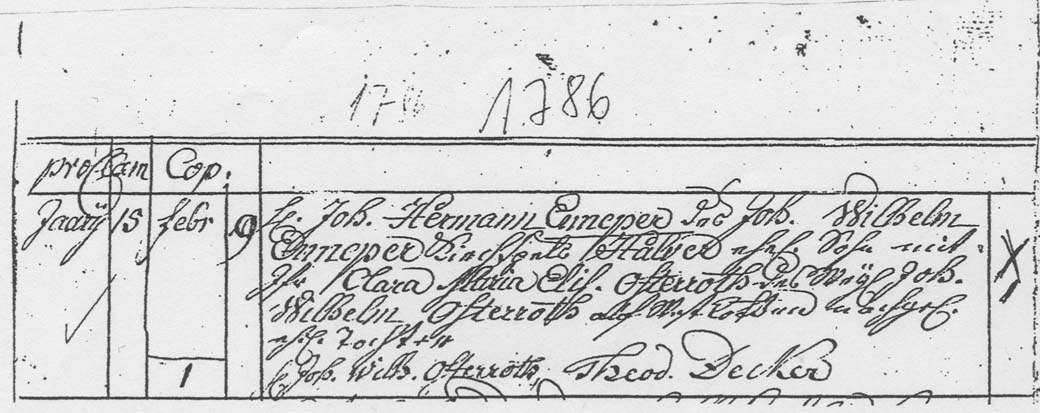 1786 1786
proclam Cop.
Januarij 15 febr 9 H. Joh. Hermann Enneper des Joh. Wilhelm
Enneper Kirchspiels Halver ehel. Sohn mit
Jfr Clara Maria Elis. Osterroth des Weyl. Joh.
Wilhelm Osterroth nachgel.
ehel. Tochter
1 Joh. Wilh. Osterroth, Theod. Decker